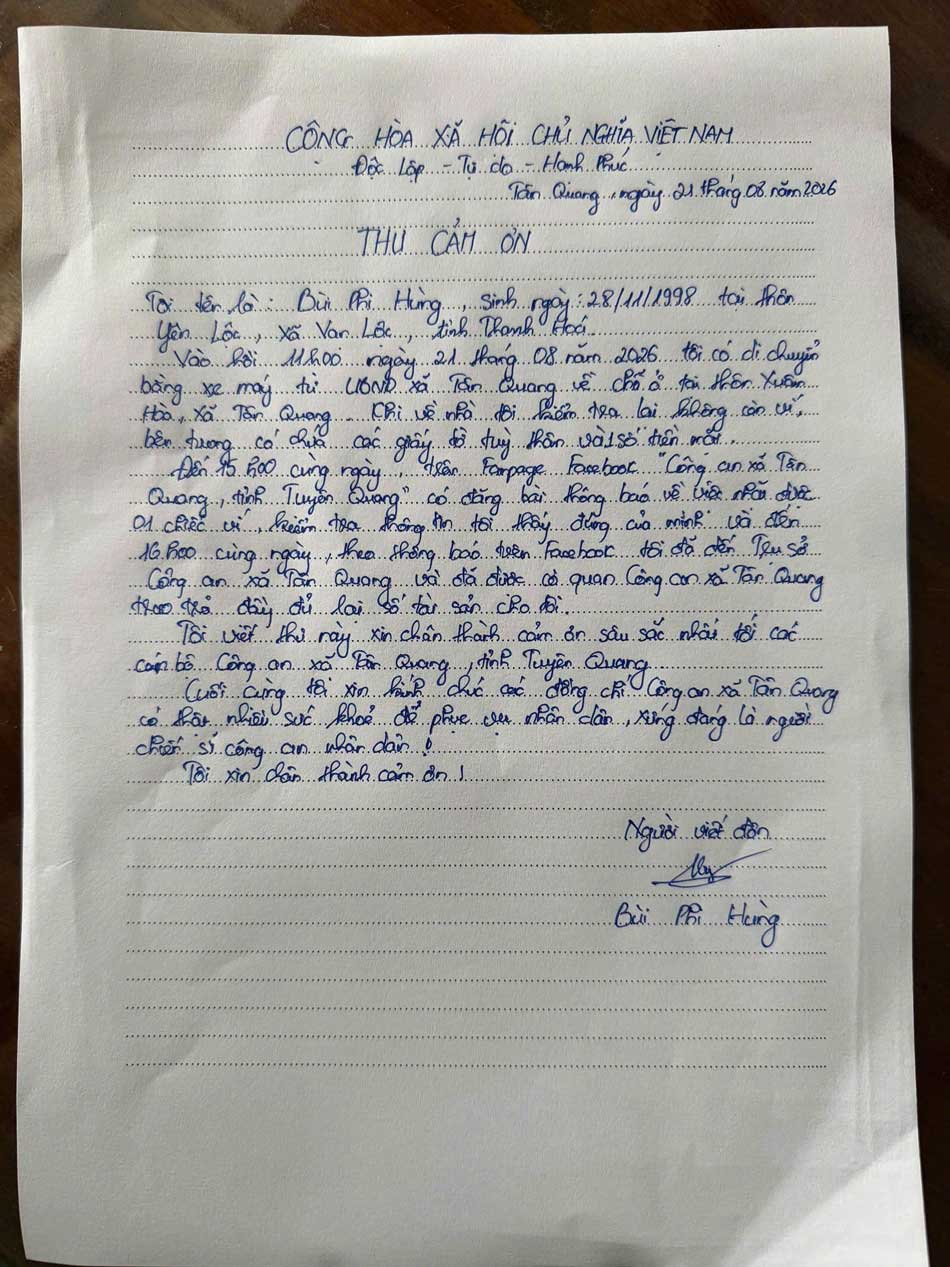 CÔNG HÒA XÃ HÔI CHỦ NGHĨA VIỆT NAM
Độc Lập - Tự do - Hanh Phúc
Tân Quang, ngày 21 tháng 08 năm 2026
THU CẢM ƠN
Tôi tên là: Bùi Phi Hùng, sinh ngày: 28/11/1998 tại thôn
Yên Lộc, Xã Vạn Lộc, tỉnh Thanh Hoá.
Vào hồi 11h00 ngày 21 tháng 08 năm 2026 tôi có di chuyển
bằng xe máy từ UBND xã Tân Quang về chỗ ở tại thôn Xuân
Hòa, xã Tân Quang. Khi về nhà tôi kiểm tra lại không còn ví,
bên trong có chứa các giấy tờ tuỳ thân và 1 số tiền mặt.
Đến 15h00 cùng ngày, trên Fanpage Facebook "Công an xã Tân
Quang, tỉnh Tuyên Quang" có đăng bài thông báo về việc nhặt được
01 chiếc ví, kiểm tra thông tin tôi thấy đúng của mình và đến
16h00 cùng ngày, theo thông báo trên Facebook tôi đã đến Trụ sở
Công an xã Tân Quang và đã được cơ quan Công an xã Tân Quang
trao trả đầy đủ lại số tài sản cho tôi.
Tôi viết thư này xin chân thành cảm ơn sâu sắc nhất tới các
cán bộ Công an xã Tân Quang, tỉnh Tuyên Quang
Cuối cùng tôi xin kính chúc các đồng chí Công an xã Tân Quang
có thật nhiều sức khoẻ để phục vụ nhân dân, xứng đáng là người
chiến sĩ công an nhân dân!
Tôi xin chân thành cảm ơn!
Người viết đơn
Bùi Phi Hùng